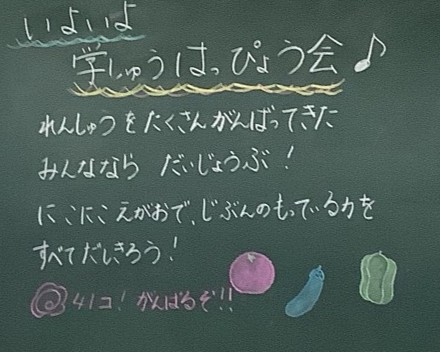 いよいよ
学しゅうはっぴょう会♪
れんしゅうをたくさんがんばってきた
みんななら だいじょうぶ!
にこにこえがおで、じぶんのもっている力を
すべてだしきろう!
41コ!がんばるぞ!!